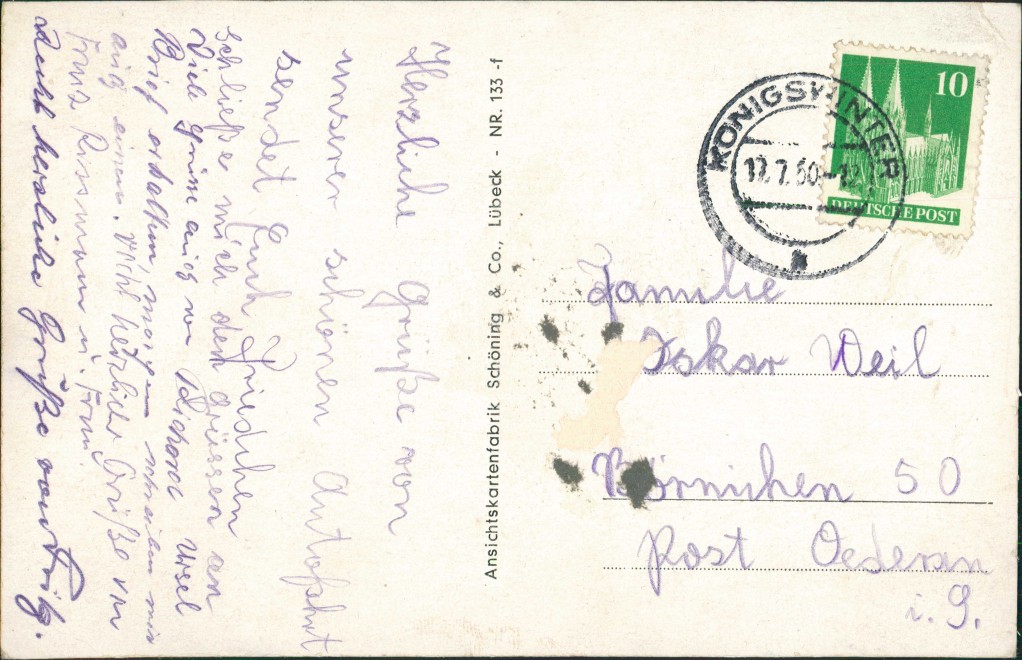 Herzliche Grüße von
unserer schönen Autofahrt
sendet Euch Friedchen
schließe mich den grüssen an
Viele Grüsse auch von Richard Ursel
Brief erhalten, morgen schreiben wir
auch einen. Viele herzliche Grüße von
Franz u. Frau.
Recht herzliche Grüße von Fritz.
Ansichtskartenfabrik Schöning & Co., Lübeck - NR. 133 -f
KÖNIGSWINTER
17.7.50
10
DEUTSCHE POST
Familie
Oskar Weil
Börnichen 50
Post Oederan
i. S.